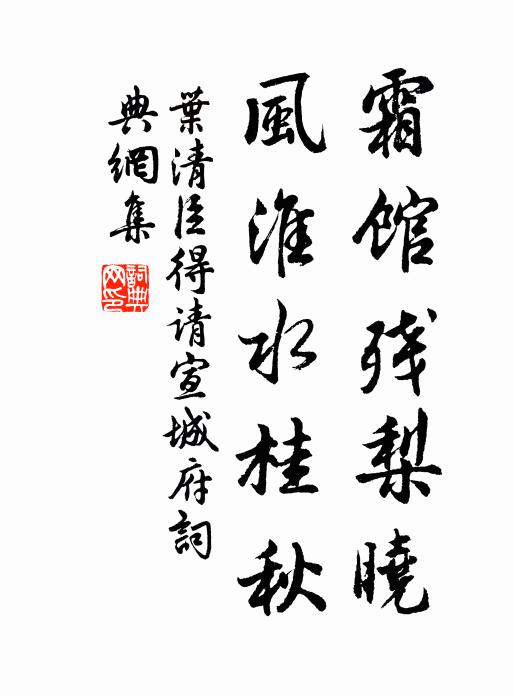 霜馆残梨曉
風淮水桂秋
葉清臣得请宣城府詞
典網集
詞典网印